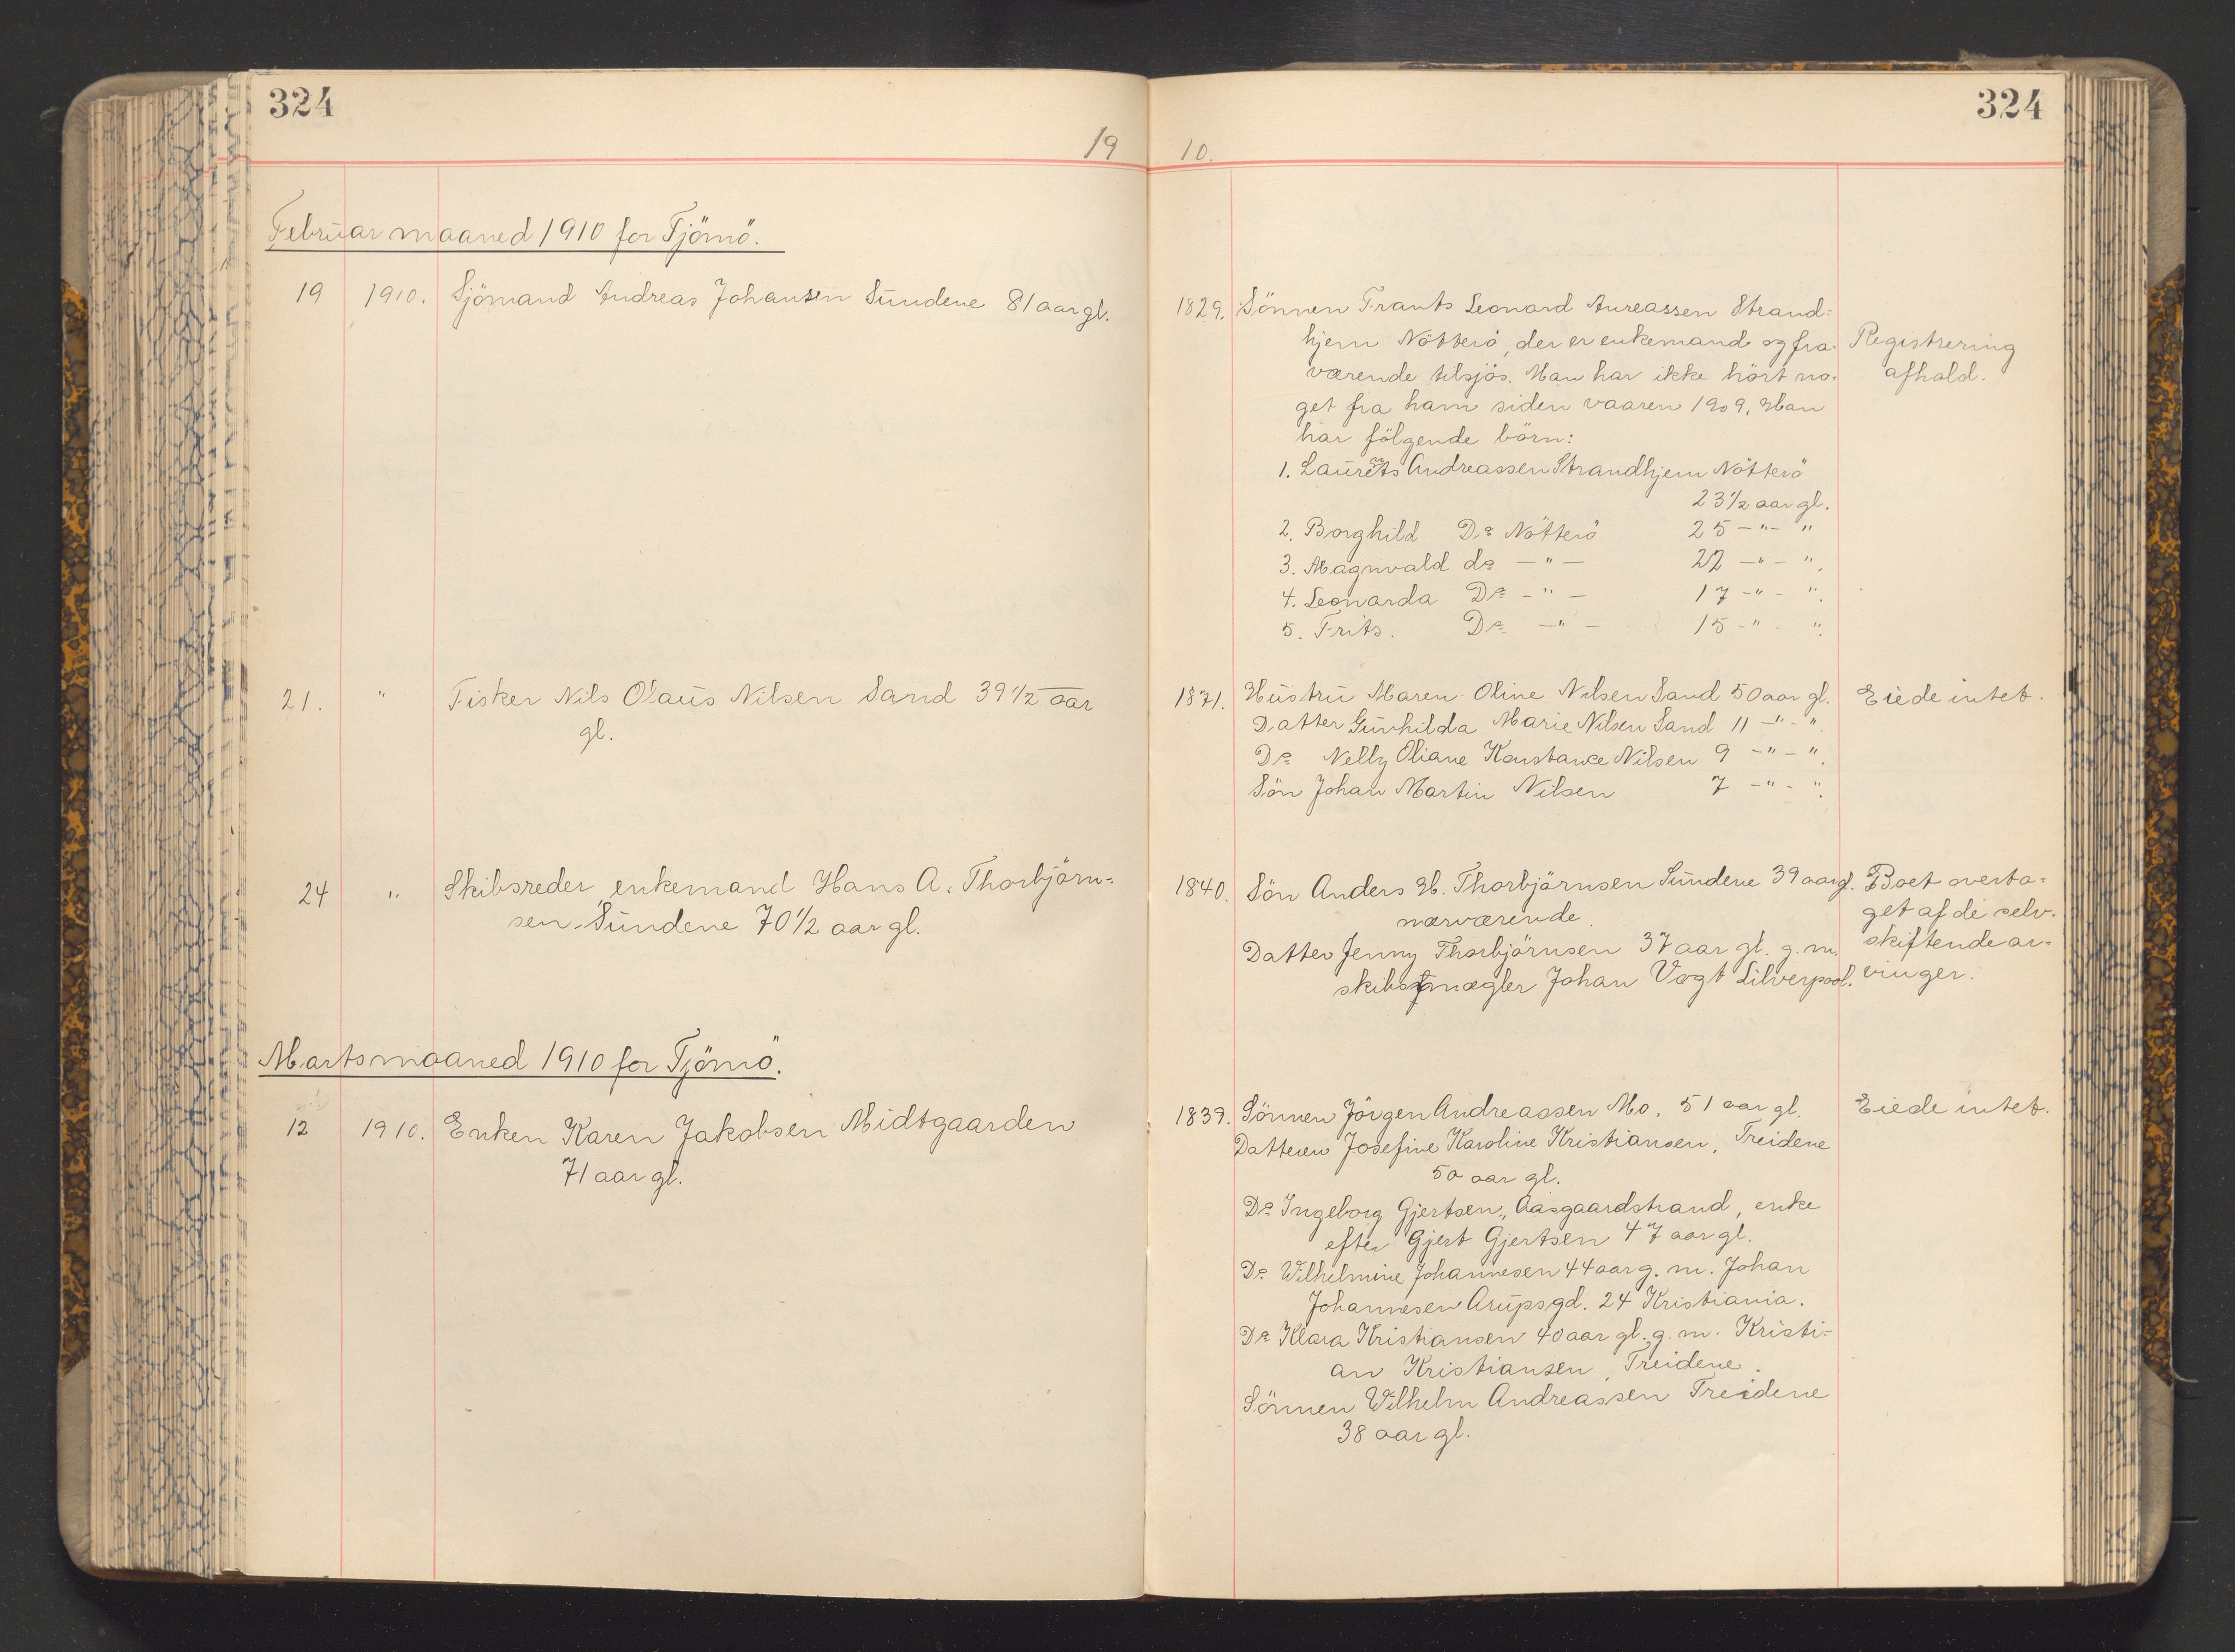 324
324
19 10.
Februar maaned 1910 for Tjömö.
19 1910. Sjömand Andreas Johansen Sundene 81 aar gl.
1829. Sönnen Frants Leonard Anreassen Strand=
hjem Nötterö, der er enkemand og fra-
værende tilsjös. Man har ikke hört no-
get fra ham siden vaaren 1909. Han
har fölgende börn:
1. Laurents Andreassen Strandhjem Nötterö
23 1/2 aar gl.
2. Borghild Do Nötterö 25 - " - "
3. Magnvald do - " - 22 - " - ".
4. Leonarda Do - " - 17 - " - ".
5. Frits. Do - " - 15 - " - ".
Registrering
afhold.
21. " Fisker Nils Olaus Nilsen Sand 39 1/2 aar
gl.
1871. Hustru Maren Oline Nilsen Sand 50 aar gl.
Datter Gunhilda Marie Nilsen Sand 11 - " - ".
Do Nelly Oliane Konstance Nilsen 9 - " - ".
Sön Johan Martin Nilsen 7 - " - ".
Eiede intet.
24 " Skibsreder, enkemand Hans A. Thorbjörn=
sen, Sundene 70 1/2 aar gl.
1840. Sön Anders H. Thorbjörnsen Sundene 39 aar gl.
nærværende.
Datter Jenny Thorbjörnsen 37 aar gl. g. m.
skibsmægler Johan Vogt Lilverpool.
Boet overta=
get af de selv.
skiftende ar=
vinger.
Martsmaaned 1910 for Tjömö.
12 1910. Enken Karen Jakobsen Midtgaarden
71 aar gl.
1839. Sönnen Jörgen Andreassen Mo. 51 aar gl.
Datteren Josefine Karoline Kristiansen, Treidene
50 aar gl.
Do Ingeborg Gjertsen, Aasgaardstrand, enke
efter Gjert Gjertsen 47 aar gl.
Do Wilhelmine Johannesen 44 aar g. m. Johan
Johannesen Arupsgd. 24 Kristiania.
Do Klara Kristiansen 40 aar gl. g. m. Kristi=
an Kristiansen, Treidene.
Sönnen Wilhelm Andreassen Treidene
38 aar gl.
Eiede intet.